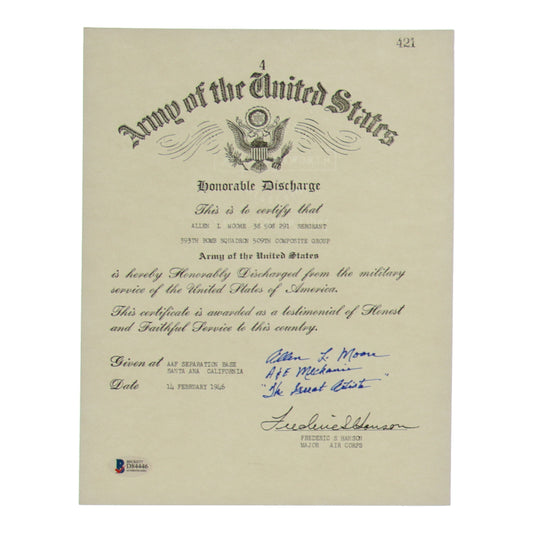 421
4
Army of the United States
Honorable Discharge
This is to certify that
ALLEN L MOORE 38 508 291 SERGEANT
393TH BOMB SQUADRON 509TH COMPOSITE GROUP
Army of the United States
is hereby Honorably Discharged from the military
service of the United States of America.
This certificate is awarded as a testimonial of Honest
and Faithful Service to this country.
Given at AAF SEPARATION BASE
SANTA ANA CALIFORNIA
Date 14 FEBRUARY 1946
Allen L. Moore
A & E Mechanic
"The Great Artiste"
Frederic S Hanson
FREDERIC S HANSON
MAJOR AIR CORPS
BECKETT
D84446